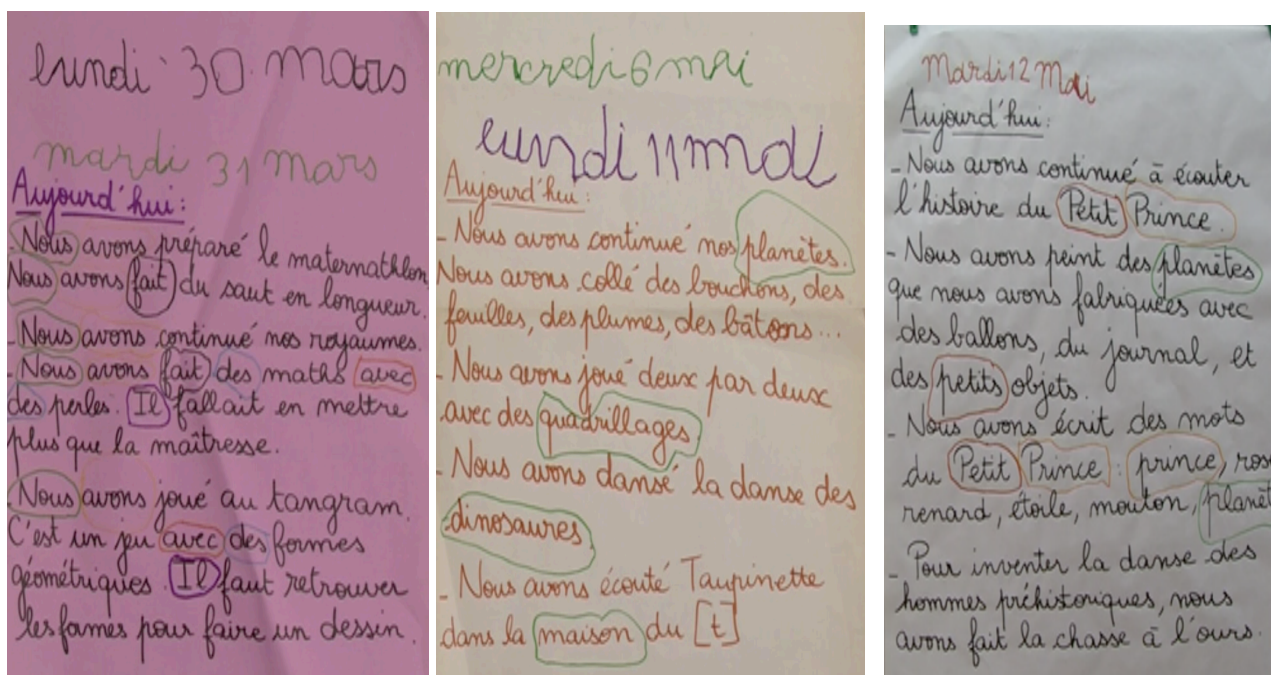 lundi 30 mars
mardi 31 mars
Aujourd'hui :
- Nous avons préparé le maternathlon
Nous avons fait du saut en longueur.
- Nous avons continué nos royaumes.
- Nous avons fait des maths avec
des perles. Il fallait en mettre
plus que la maîtresse.
- Nous avons joué au tangram.
C'est un jeu avec des formes
géométriques. Il faut retrouver
les formes pour faire un dessin.
mercredi 6 mai
lundi 11 mai
Aujourd'hui :
- Nous avons continué nos planètes.
Nous avons collé des bouchons, des
feuilles, des plumes, des bâtons...
- Nous avons joué deux par deux
avec des quadrillages
- Nous avons dansé la danse des
dinosaures
- Nous avons écouté Taupinette
dans la maison du [t]
Mardi 12 Mai
Aujourd'hui :
- Nous avons continué à écouter
l'histoire du Petit Prince.
- Nous avons peint des planètes
que nous avons fabriquées avec
des ballons, du journal, et
des petits objets.
- Nous avons écrit des mots
du Petit Prince : prince, ros
renard, étoile, mouton, planèt
- Pour inventer la danse des
hommes préhistoriques, nous
avons fait la chasse à l'ours.